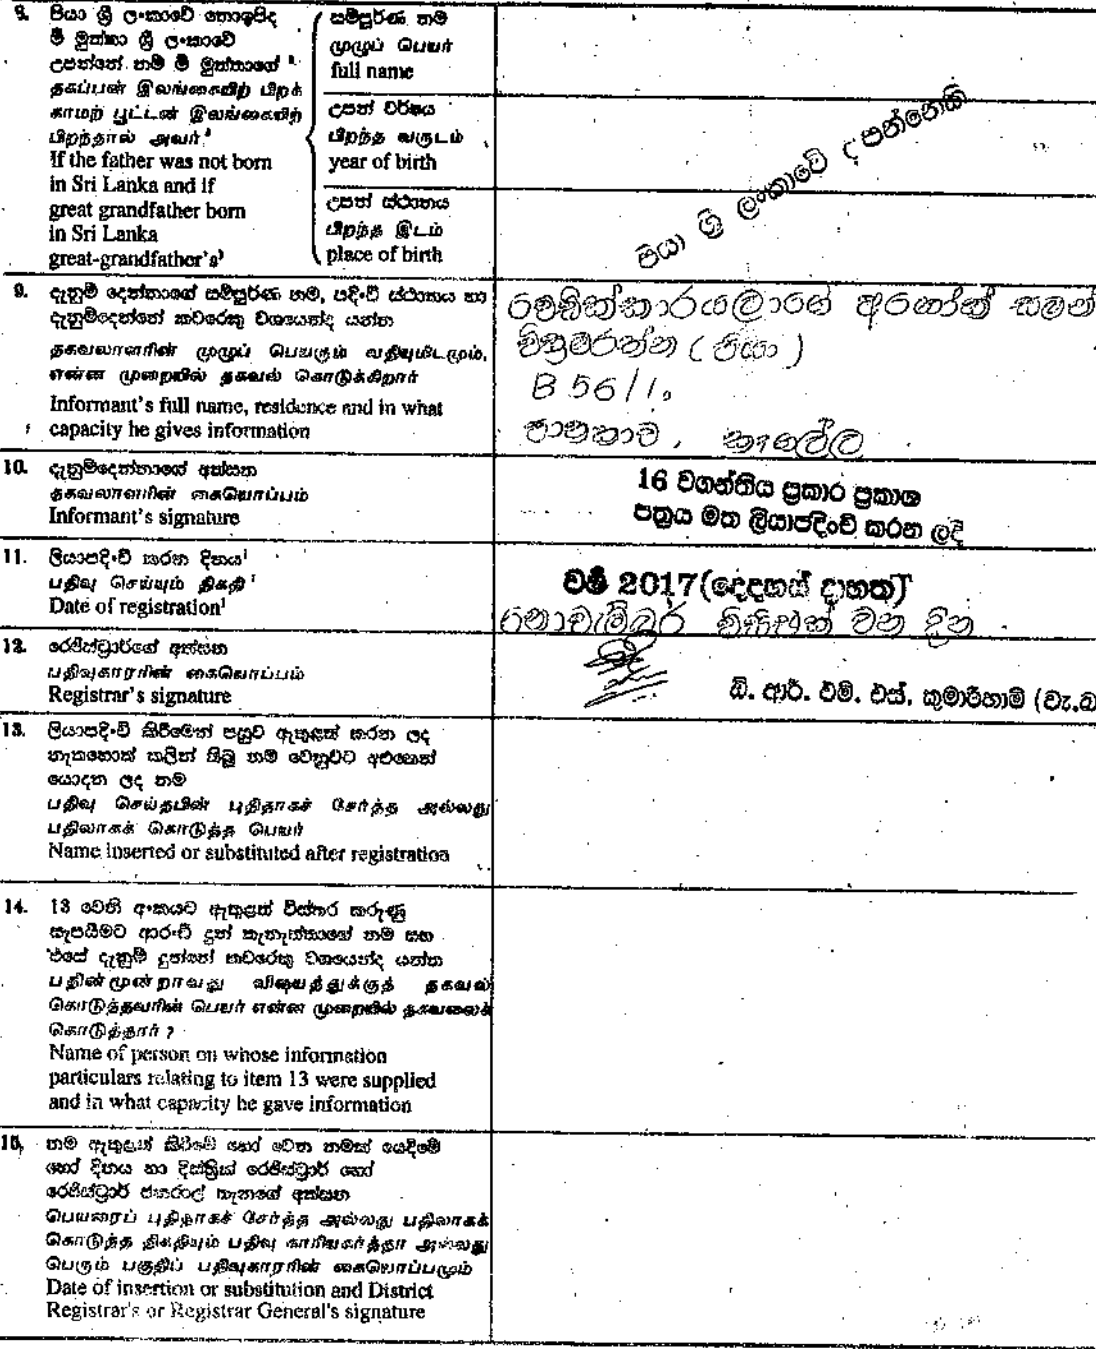 පියා ශ්‍රී ලංකාවේ නොඉපිද
මී මුත්තා ශ්‍රී ලංකාවේ
උපන්නේ නම් මී මුත්තාගේ
தகப்பன் இலங்கையிற் பிறக்
காமற் பூட்டன் இலங்கையிற்
பிறந்தால் அவர்
If the father was not born
in Sri Lanka and if
great grandfather born
in Sri Lanka
great-grandfather's³
සම්පූර්ණ නම
முழுப் பெயர்
full name
උපන් වර්ෂය
பிறந்த வருடம்
year of birth
උපන් ස්ථානය
பிறந்த இடம்
place of birth
පියා ශ්‍රී ලංකාවේ උපන්නෙකි
9. දැනුම් දෙන්නාගේ සම්පූර්ණ නම, පදිංචි ස්ථානය හා
දැනුම්දෙන්නේ කවරෙකු වශයෙන්ද යන්න
தகவலாளரின் முழுப் பெயரும் வதிவிடமும்,
என்ன முறையில் தகவல் கொடுக்கிறார்
Informant's full name, residence and in what
capacity he gives information
වෙඩික්කාරයලාගේ අශෝක් සමන්
වික්‍රමරත්න (පියා)
B 56/1,
කෑගල්ල
10. දැනුම්දෙන්නාගේ අත්සන
தகவலாளரின் கையொப்பம்
Informant's signature
16 වගන්තිය ප්‍රකාර ප්‍රකාශ
පත්‍රය මත ලියාපදිංචි කරන ලදි
11. ලියාපදිංචි කරන දිනය¹
பதிவு செய்யும் திகதி¹
Date of registration¹
වර්ෂ 2017(දෙදහස් දාහත)
නොවැම්බර් වන දින
12. රෙජිස්ට්‍රාර්ගේ අත්සන
பதிவுகாரரின் கையொப்பம்
Registrar's signature
බී. ආර්. එම්. එස්. කුමාරිහාමි (වැ.බ
13. ලියාපදිංචි කිරීමෙන් පසුව ඇතුළත් කරන ලද
නැතහොත් කලින් තිබූ නම වෙනුවට අළුතෙන්
යොදන ලද නම
பதிவு செய்தபின் புதிதாகச் சேர்த்த அல்லது
பதிலாகக் கொடுத்த பெயர்
Name inserted or substituted after registration
14. 13 වෙනි අංකයට ඇතුළත් විස්තර කරුණු
සැපයීමට ආරංචි දුන් තැනැත්තාගේ නම සහ
එසේ දැනුම් දුන්නේ කවරෙකු වශයෙන්ද යන්න
பதின்மூன்றாவது விஷயத்துக்குத் தகவல்
கொடுத்தவரின் பெயர் என்ன முறையில் தகவலைக்
கொடுத்தார் ?
Name of person on whose information
particulars relating to item 13 were supplied
and in what capacity he gave information
15. නම ඇතුළත් කිරීමේ හෝ වෙන නමක් යෙදීමේ
හෝ දිනය හා දිස්ත්‍රික් රෙජිස්ට්‍රාර් හෝ
රෙජිස්ට්‍රාර් ජනරාල් තැනගේ අත්සන
பெயரைப் புதிதாகச் சேர்த்த அல்லது பதிலாகக்
கொடுத்த திகதியும் பதிவு காரியகர்த்தா அல்லது
பெரும் பகுதிப் பதிவுகாரரின் கையொப்பமும்
Date of insertion or substitution and District
Registrar's or Registrar General's signature